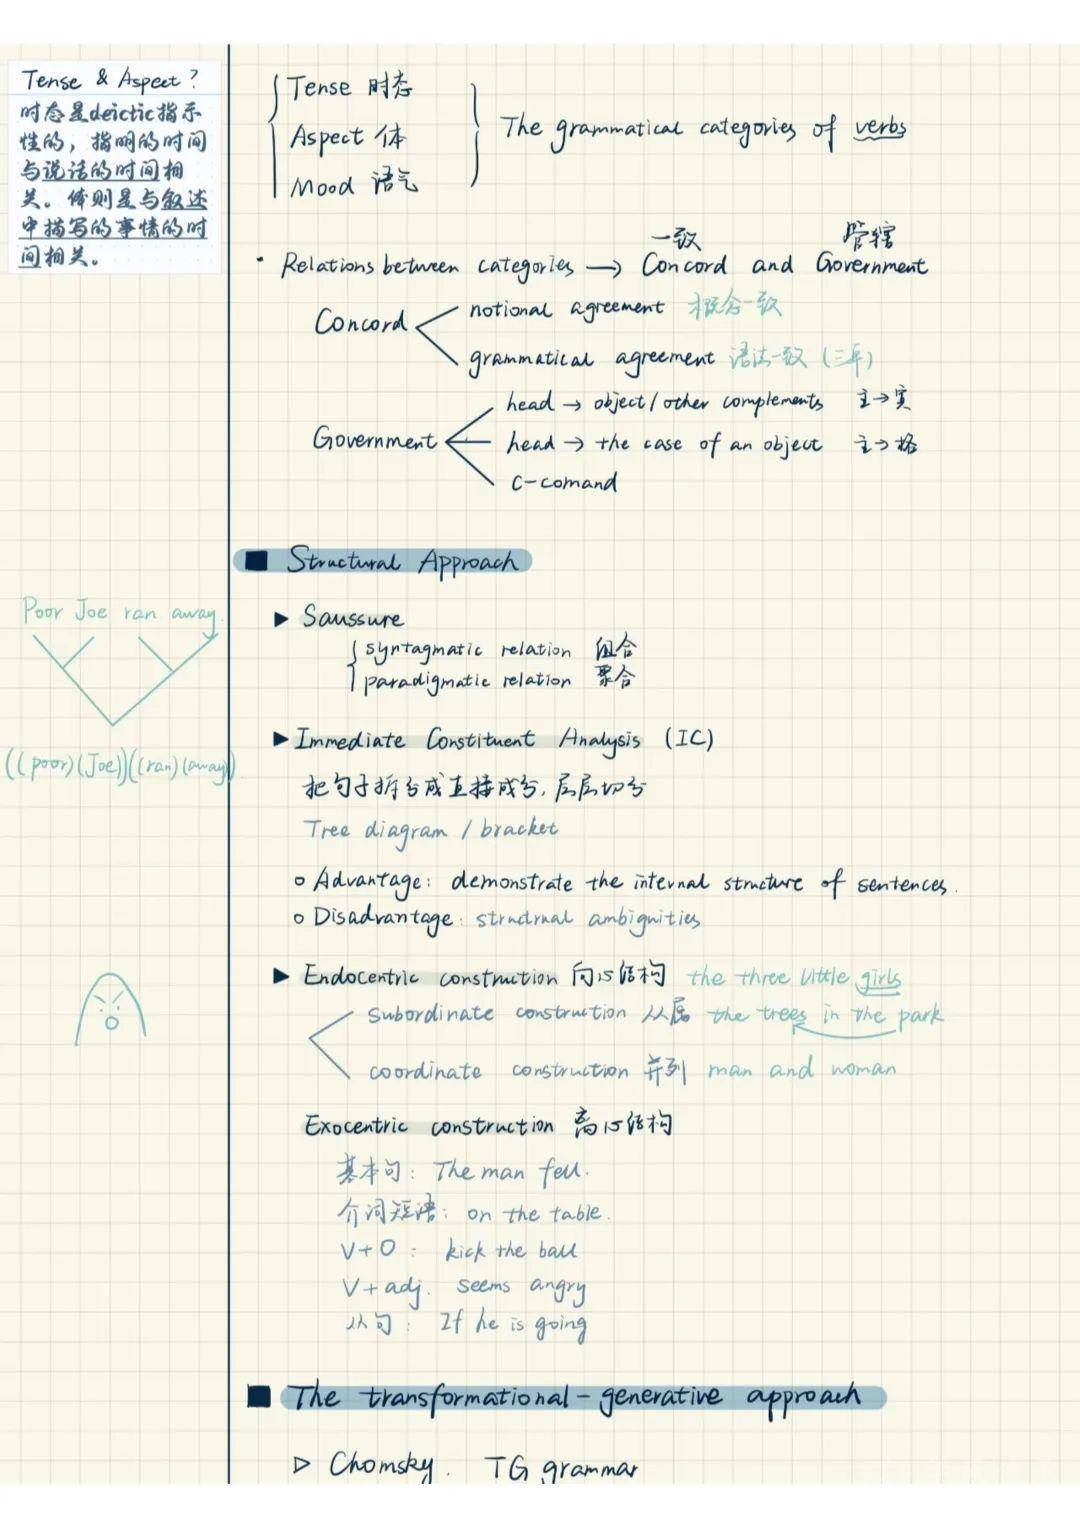 Tense & Aspect?
时态是deictic指示
性的，指明的时间
与说话的时间相
关。体则是与叙述
中描写的事情的时
间相关。
Tense 时态
Aspect 体
Mood 语气
The grammatical categories of verbs
一致 管辖
· Relations between categories → Concord and Government
Concord
notional agreement 概念一致
grammatical agreement 语法一致 (三单)
Government
head → object/other complements 主→宾
head → the case of an object 主→格
c-comand
■ Structural Approach
▶ Saussure
syntagmatic relation 组合
paradigmatic relation 聚合
Poor Joe ran away.
((poor)(Joe))((ran)(away)).
▶ Immediate Constituent Analysis (IC)
把句子拆分成直接成分,层层切分
Tree diagram / bracket
o Advantage: demonstrate the internal structure of sentences.
o Disadvantage: structrual ambiguities
▶ Endocentric construction 向心结构 the three little girls
subordinate construction 从属 the trees in the park
coordinate construction 并列 man and woman
Exocentric construction 离心结构
基本句: The man fell.
介词短语: on the table.
V+O: kick the ball
V+adj. seems angry
从句: If he is going
■ The transformational-generative approach
▷ Chomsky. TG grammar